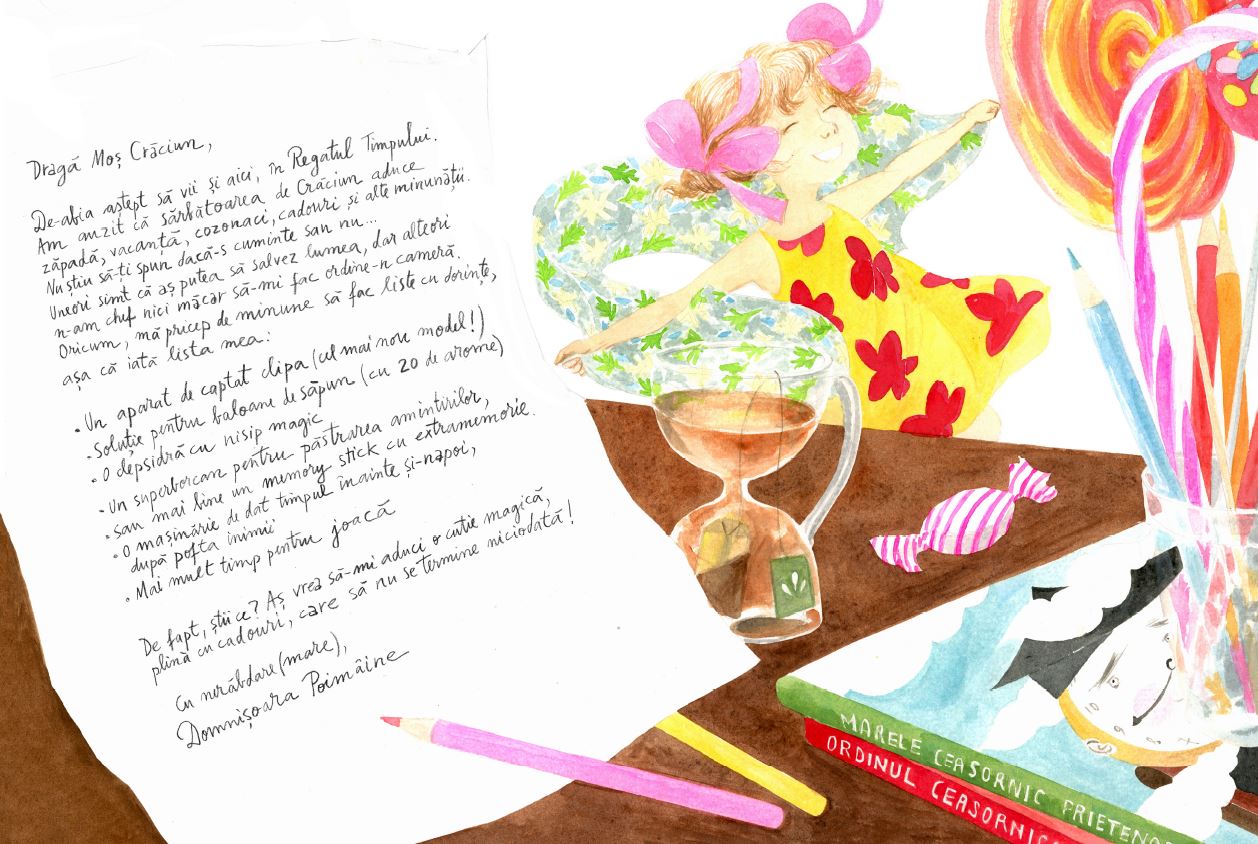 Dragă Moș Crăciun,
De-abia aștept să vii și aici, în Regatul Timpului.
Am auzit că sărbătoarea de Crăciun aduce
zăpadă, vacanță, cozonaci, cadouri și alte minunății.
Nu știu să-ți spun dacă-s cuminte sau nu...
Uneori simt că aș putea să salvez lumea, dar alteori
n-am chef nici măcar să-mi fac ordine-n cameră.
Oricum, mă pricep de minune să fac liste cu dorințe,
așa că iată lista mea:
• Un aparat de captat clipa (cel mai nou model!)
• Soluție pentru baloane de săpun (cu 20 de arome)
• O clepsidră cu nisip magic
• Un superborcan pentru păstrarea amintirilor,
• sau mai bine un memory stick cu extramemorie.
• O mașinărie de dat timpul înainte și-napoi,
după pofta inimii
• Mai mult timp pentru joacă
De fapt, știi ce? Aș vrea să-mi aduci o cutie magică,
plină cu cadouri, care să nu se termine niciodată!
Cu nerăbdare (mare),
Domnișoara Poimâine
MARELE CEASORNIC PRIETENO
ORDINUL CEASORNICA
10 9 8